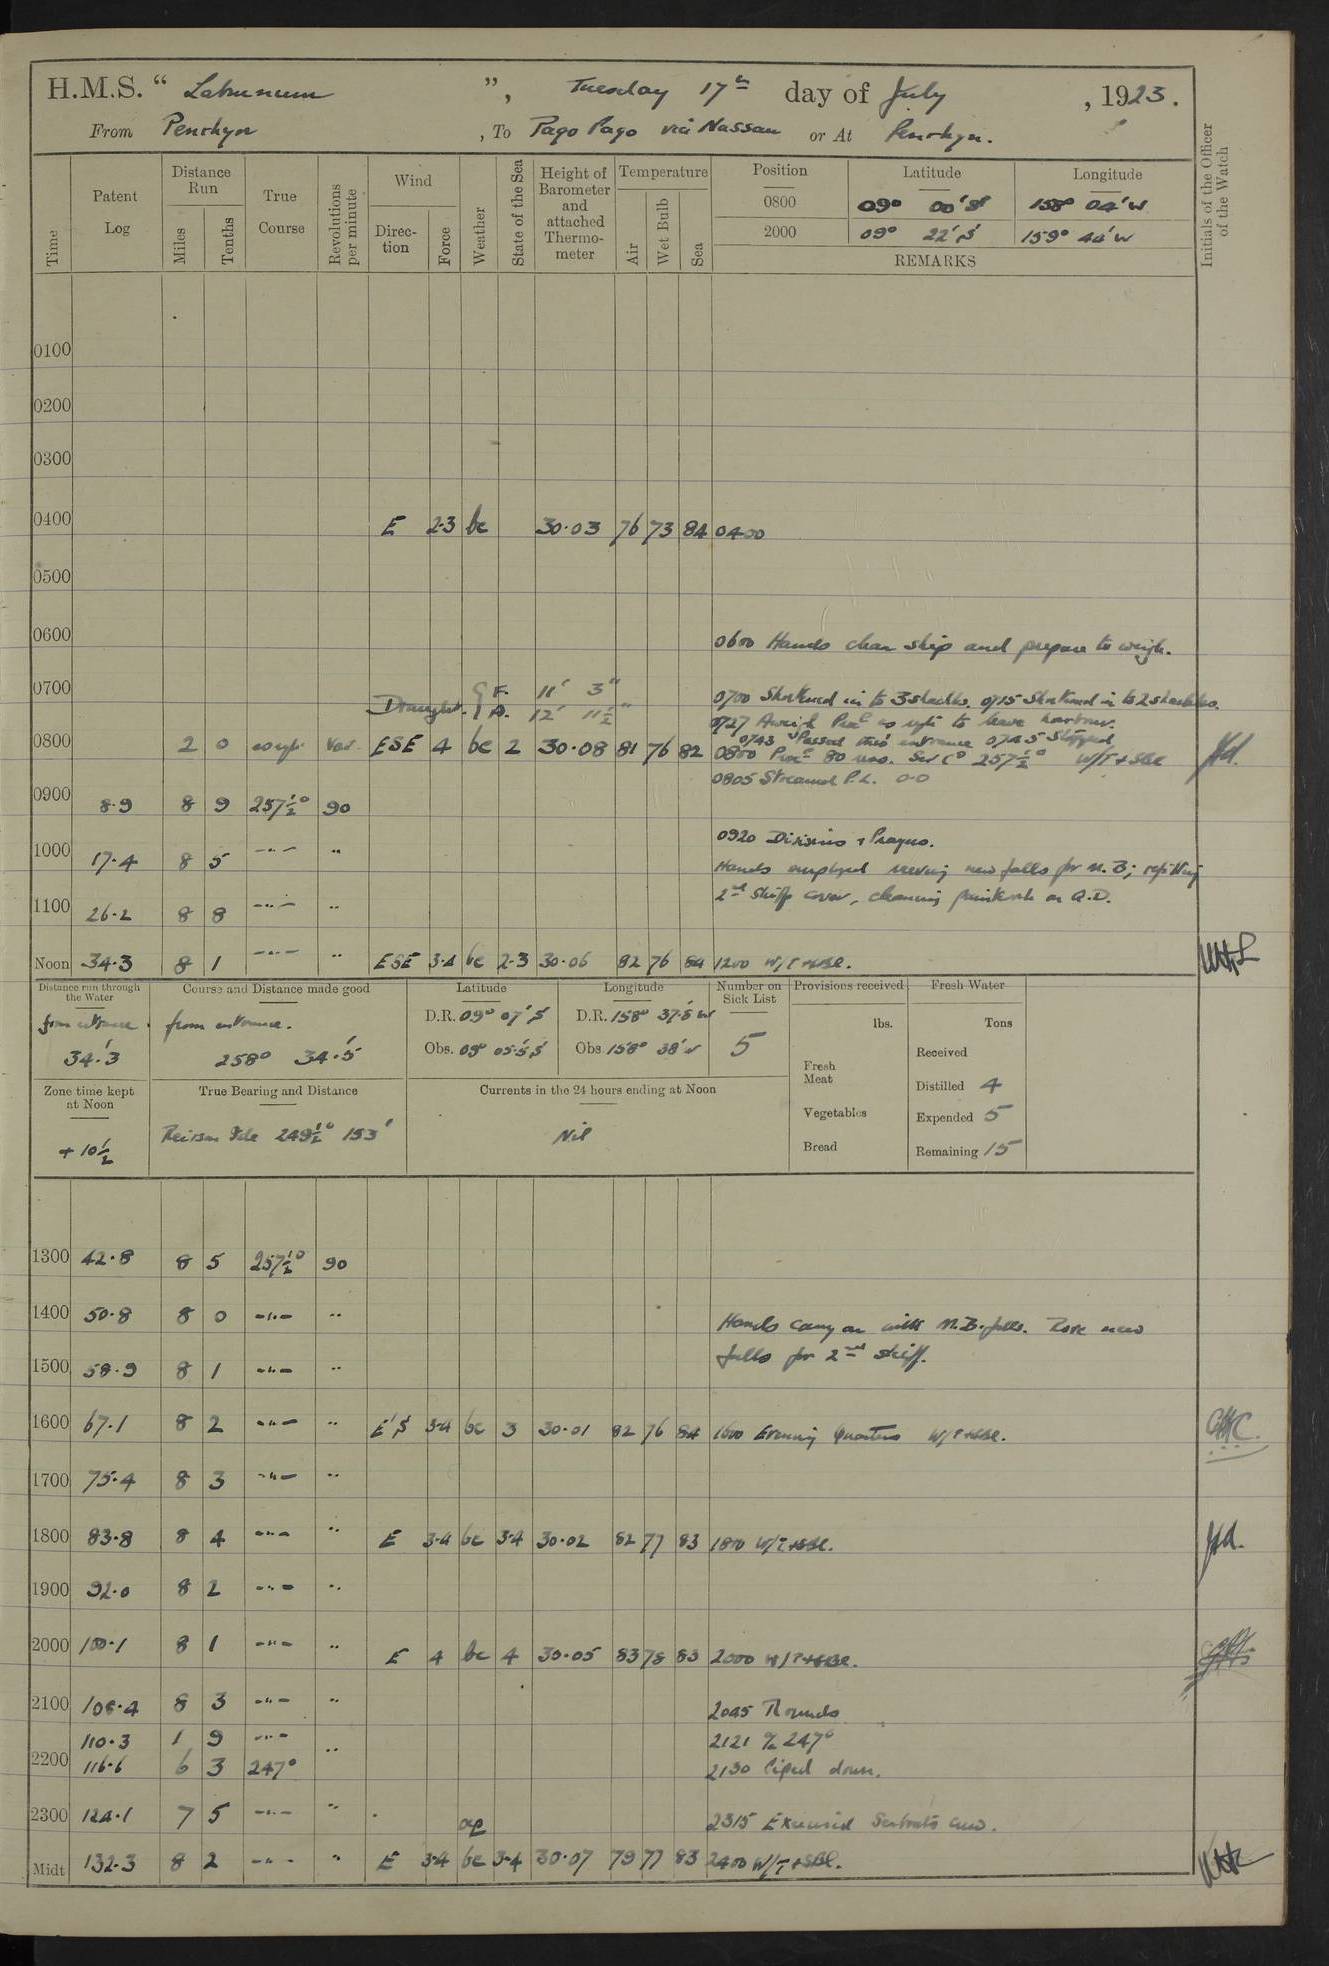 H.M.S. “ Laburnum ”, Tuesday 17th day of July, 1923.
From Penrhyn, To Pago Pago via Nassau or At Penrhyn.
Time
Patent Log
Distance Run
Miles
Tenths
True Course
Revolutions per minute
Wind
Direction
Force
Weather
State of the Sea
Height of Barometer and attached Thermometer
Temperature
Air
Wet Bulb
Sea
Position Latitude Longitude
0800 09° 00'S 158° 04'W
2000 09° 22'S 159° 44'W
REMARKS
Initials of the Officer of the Watch
0100
0200
0300
0400 E 2·3 bc 30·03 76 73 84 0400
0500
0600 0600 Hands clean ship and prepare to weigh.
0700 Draught. { F. 11' 3" 0700 Shortened in to 3 shackles. 0715 Shortened in to 2 shackles.
A. 12' 11½" 0727 Aweigh Procd as reqte to leave harbour.
0743 Passed thro' entrance 0745 Stopped
0800 2 0 as reqte Var. ESE 4 bc 2 30·08 81 76 82 0800 Procd 80 revs. Set Co 257½° W/T+SBl
0805 Streamed P.L. 0·0
0900 8·9 8 9 257½° 90
0920 Divisions + Prayers.
1000 17·4 8 5 -"- "
Hands employed reeving new falls for M.B; refitting
2nd Skiff cover, cleaning paintwork on Q.D.
1100 26·2 8 8 -"- "
Noon 34·3 8 1 -"- " ESE 3·4 bc 2·3 30·06 82 76 84 1200 W/T+SBl.
Distance run through the Water
from entrance.
34'·3
Course and Distance made good
from entrance.
258° 34'·5
Latitude
D.R. 09° 07'S
Obs. 09° 05·5'S
Longitude
D.R. 158° 37·5'W
Obs. 158° 38'W
Number on Sick List
5
Provisions received
lbs.
Fresh Meat
Vegetables
Bread
Fresh Water
Tons
Received
Distilled 4
Expended 5
Remaining 15
Zone time kept at Noon
+ 10½
True Bearing and Distance
249½° 153'
Currents in the 24 hours ending at Noon
Nil
1300 42·8 8 5 257½° 90
1400 50·8 8 0 -"- "
Hands carry on with M.B. falls. Rove new
falls for 2nd skiff.
1500 58·9 8 1 -"- "
1600 67·1 8 2 -"- " E'S 3·4 bc 3 30·01 82 76 84 1600 Evening Quarters W/T+SBl.
1700 75·4 8 3 -"- "
1800 83·8 8 4 -"- " E 3·4 bc 3·4 30·02 82 77 83 1800 W/T+SBl.
1900 92·0 8 2 -"- "
2000 100·1 8 1 -"- " E 4 bc 4 30·05 83 78 83 2000 W/T+SBl.
2100 108·4 8 3 -"- " 2045 Rounds
110·3 1 9 -"- 2121 a/c 247°
2200 116·6 6 3 247° " 2130 Piped down.
2300 124·1 7 5 -"- " qp 2315 Exercised Seaboats crew.
Midt 132·3 8 2 -"- " E 3·4 bc 3·4 30·07 79 77 83 2400 W/T+SBl.